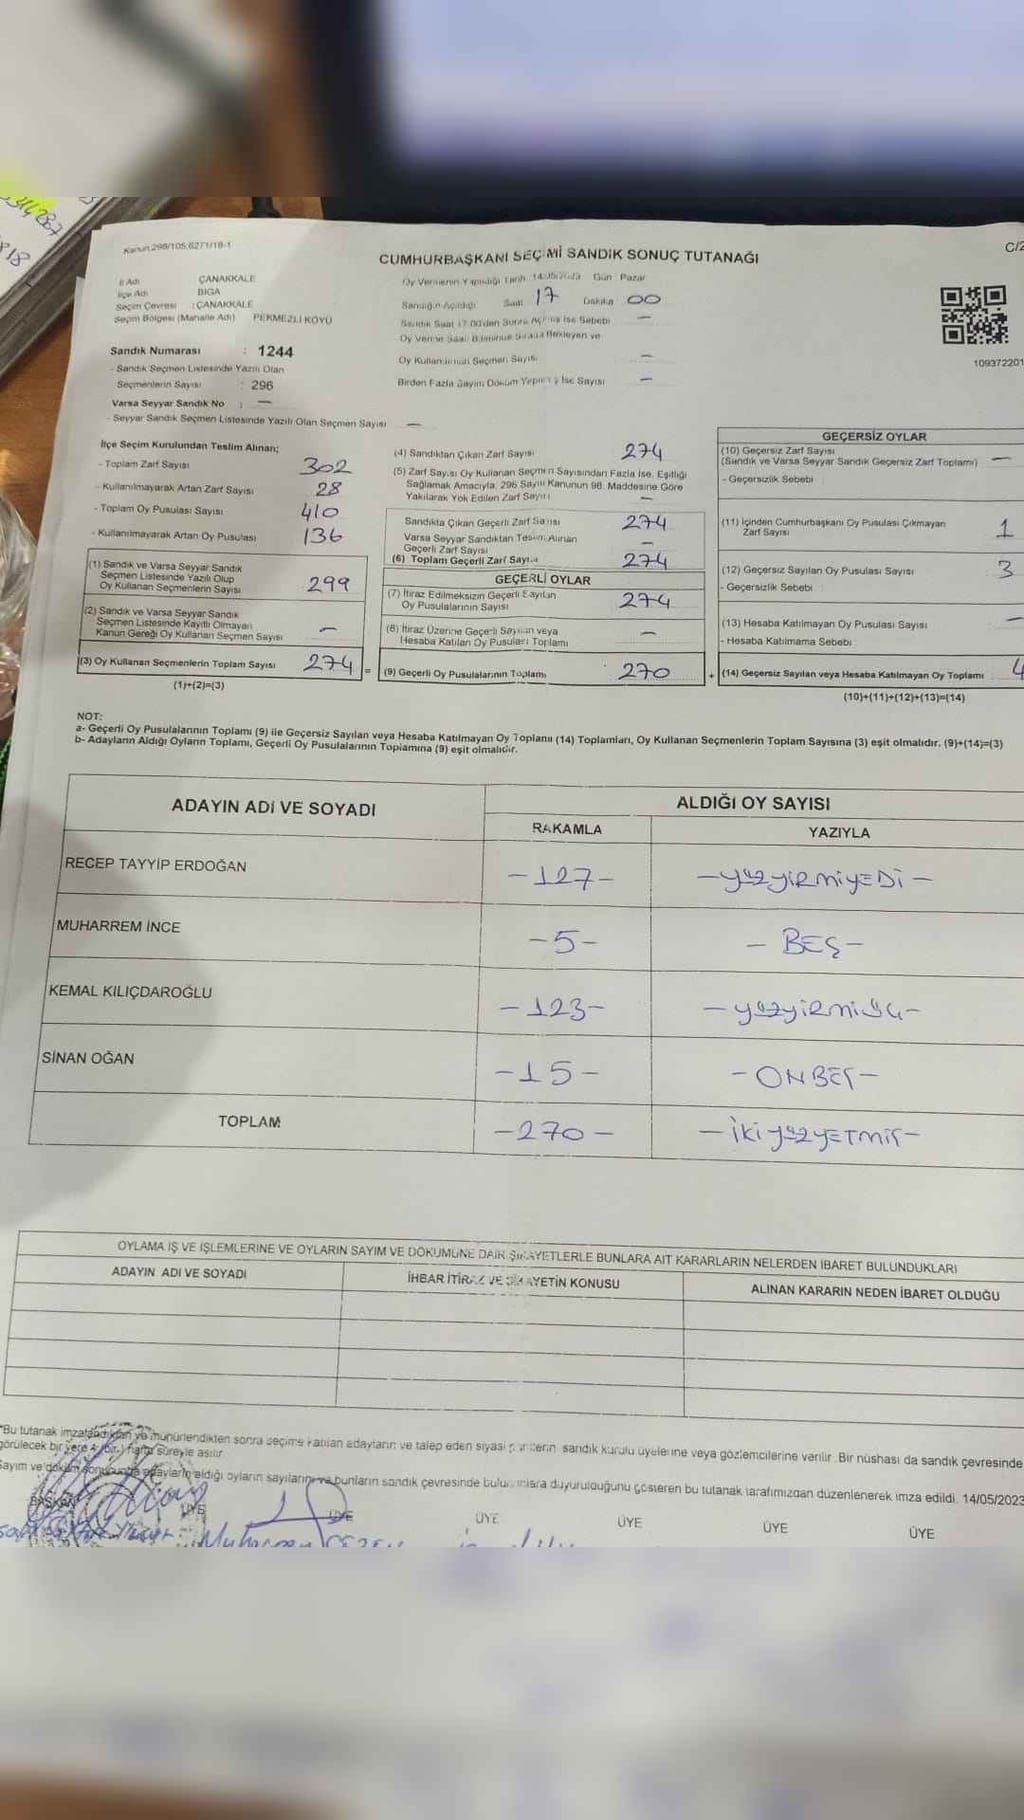 Kanun:298/105,6271/18-1
C/2
CUMHURBAŞKANI SEÇİMİ SANDIK SONUÇ TUTANAĞI
İl Adı ÇANAKKALE
İlçe Adı BİGA
Seçim Çevresi : ÇANAKKALE
Seçim Bölgesi (Mahalle Adı) PEKMEZLİ KÖYÜ
Sandık Numarası : 1244
- Sandık Seçmen Listesinde Yazılı Olan
Seçmenlerin Sayısı : 296
Varsa Seyyar Sandık No : —
- Seyyar Sandık Seçmen Listesinde Yazılı Olan Seçmen Sayısı —
Oy Vermenin Yapıldığı Tarih: 14/05/2023 Gün: Pazar
Sandığın Açıldığı Saat 17 Dakika 00
Sandık Saat 17:00'den Sonra Açılmış İse Sebebi —
Oy Verme Saati Bitiminde Sırada Bekleyen ve
Oy Kullandırılan Seçmen Sayısı —
Birden Fazla Sayım Döküm Yapılmış İse Sayısı —
109372201
İlçe Seçim Kurulundan Teslim Alınan;
- Toplam Zarf Sayısı 302
- Kullanılmayarak Artan Zarf Sayısı 28
- Toplam Oy Pusulası Sayısı 410
- Kullanılmayarak Artan Oy Pusulası 136
(1) Sandık ve Varsa Seyyar Sandık
Seçmen Listesinde Yazılı Olup
Oy Kullanan Seçmenlerin Sayısı 299
(2) Sandık ve Varsa Seyyar Sandık
Seçmen Listesinde Kayıtlı Olmayan
Kanun Gereği Oy Kullanan Seçmen Sayısı —
(3) Oy Kullanan Seçmenlerin Toplam Sayısı 274 =
(1)+(2)=(3)
(4) Sandıktan Çıkan Zarf Sayısı 274
(5) Zarf Sayısı Oy Kullanan Seçmen Sayısından Fazla İse, Eşitliği
Sağlamak Amacıyla, 298 Sayılı Kanunun 98. Maddesine Göre
Yakılarak Yok Edilen Zarf Sayısı —
Sandıkta Çıkan Geçerli Zarf Sayısı 274
Varsa Seyyar Sandıktan Teslim Alınan
Geçerli Zarf Sayısı —
(6) Toplam Geçerli Zarf Sayısı 274
GEÇERLİ OYLAR
(7) İtiraz Edilmeksizin Geçerli Sayılan
Oy Pusulalarının Sayısı 274
(8) İtiraz Üzerine Geçerli Sayılan veya
Hesaba Katılan Oy Pusulası Toplamı —
(9) Geçerli Oy Pusulalarının Toplamı 270 +
GEÇERSİZ OYLAR
(10) Geçersiz Zarf Sayısı
(Sandık ve Varsa Seyyar Sandık Geçersiz Zarf Toplamı) —
- Geçersizlik Sebebi :
(11) İçinden Cumhurbaşkanı Oy Pusulası Çıkmayan
Zarf Sayısı 1
(12) Geçersiz Sayılan Oy Pusulası Sayısı 3
- Geçersizlik Sebebi :
(13) Hesaba Katılmayan Oy Pusulası Sayısı —
- Hesaba Katılmama Sebebi :
(14) Geçersiz Sayılan veya Hesaba Katılmayan Oy Toplamı 4
(10)+(11)+(12)+(13)=(14)
NOT:
a- Geçerli Oy Pusulalarının Toplamı (9) ile Geçersiz Sayılan veya Hesaba Katılmayan Oy Toplamı (14) Toplamları, Oy Kullanan Seçmenlerin Toplam Sayısına (3) eşit olmalıdır. (9)+(14)=(3)
b- Adayların Aldığı Oyların Toplamı, Geçerli Oy Pusulalarının Toplamına (9) eşit olmalıdır.
ADAYIN ADI VE SOYADI
ALDIĞI OY SAYISI
RAKAMLA
YAZIYLA
RECEP TAYYİP ERDOĞAN -127- -yüzyirmiyEDi-
MUHARREM İNCE -5- -BEŞ-
KEMAL KILIÇDAROĞLU -123- -yüzyirmiüç-
SİNAN OĞAN -15- -ONBEŞ-
TOPLAM -270- -ikiyüzyETmiş-
OYLAMA İŞ VE İŞLEMLERİNE VE OYLARIN SAYIM VE DÖKÜMÜNE DAİR ŞİKAYETLERLE BUNLARA AİT KARARLARIN NELERDEN İBARET BULUNDUKLARI
ADAYIN ADI VE SOYADI
İHBAR İTİRAZ VE ŞİKAYETİN KONUSU
ALINAN KARARIN NEDEN İBARET OLDUĞU
"Bu tutanak imzalandıktan ve mühürlendikten sonra seçime katılan adayların ve talep eden siyasi partilerin sandık kurulu üyelerine veya gözlemcilerine verilir. Bir nüshası da sandık çevresinde
görülecek bir yere 1 (bir) hafta süreyle asılır.
Sayım ve döküm sonucunda adayların aldığı oyların sayılarını ve bunların sandık çevresinde bulunanlara duyurulduğunu gösteren bu tutanak tarafımızdan düzenlenerek imza edildi. 14/05/2023
BAŞKAN ÜYE ÜYE ÜYE ÜYE ÜYE ÜYE
Muharrem